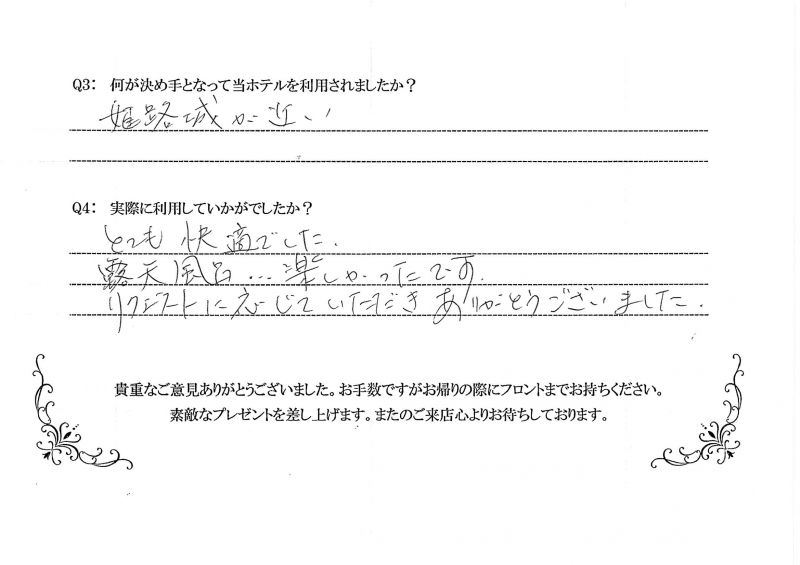 Q3： 何が決め手となって当ホテルを利用されましたか？
姫路城が近い
Q4： 実際に利用していかがでしたか？
とても快適でした．
露天風呂…楽しかったです．
リクエストに応じていただきありがとうございました．
貴重なご意見ありがとうございました。お手数ですがお帰りの際にフロントまでお持ちください。
素敵なプレゼントを差し上げます。またのご来店心よりお待ちしております。